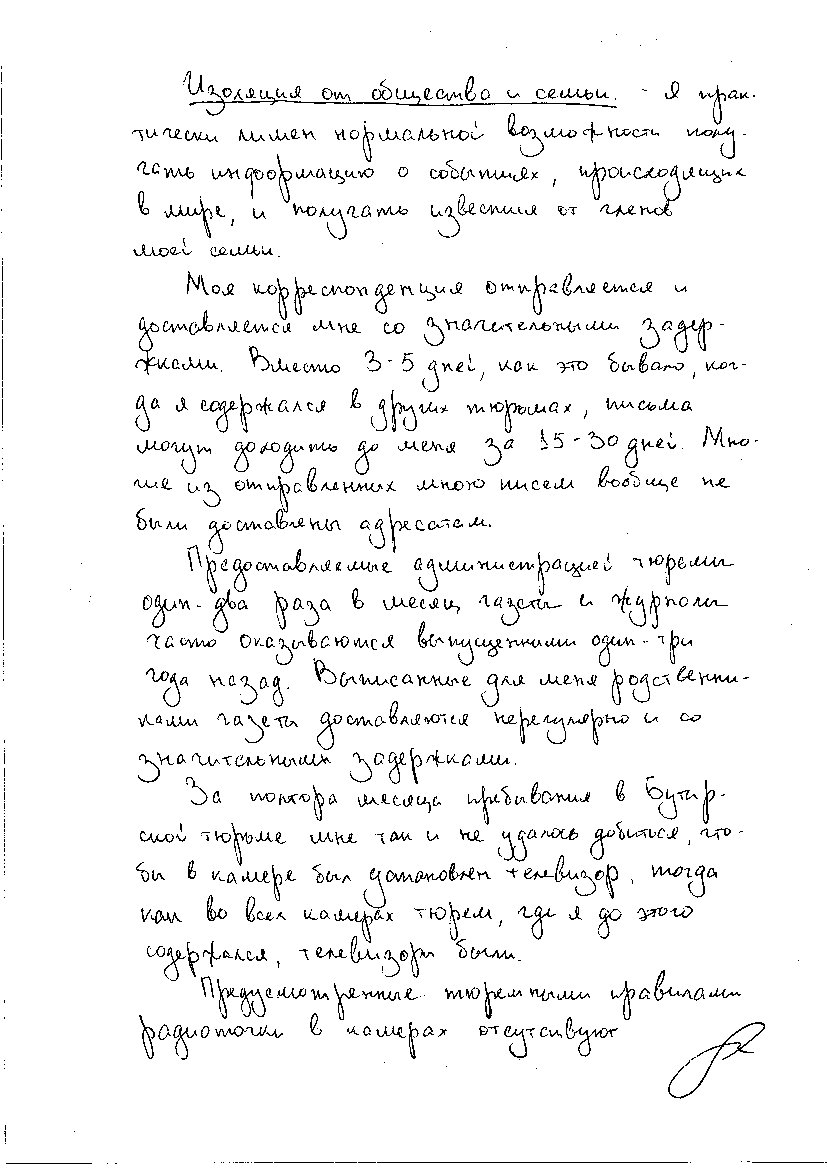 Изоляция от общества и семьи. - Я прак-
тически лишен нормальной возможности полу-
чать информацию о событиях, происходящих
в мире, и получать известия от членов
моей семьи.
Моя корреспонденция отправляется и
доставляется мне со значительными задер-
жками. Вместо 3-5 дней, как это бывало, ког-
да я содержался в других тюрьмах, письма
могут доходить до меня за 15-30 дней. Мно-
гие из отправленных мною писем вообще не
были доставлены адресатам.
Предоставляемые администрацией тюрьмы
один-два раза в месяц газеты и журналы
часто оказываются выпущенными один-три
года назад. Выписанные для меня родственни-
ками газеты доставляются нерегулярно и со
значительными задержками.
За полтора месяца пребывания в Бутыр-
ской тюрьме мне так и не удалось добиться, что-
бы в камере был установлен телевизор, тогда
как во всех камерах тюрем, где я до этого
содержался, телевизоры были.
Предусмотренные тюремными правилами
радиоточки в камерах отсутствуют